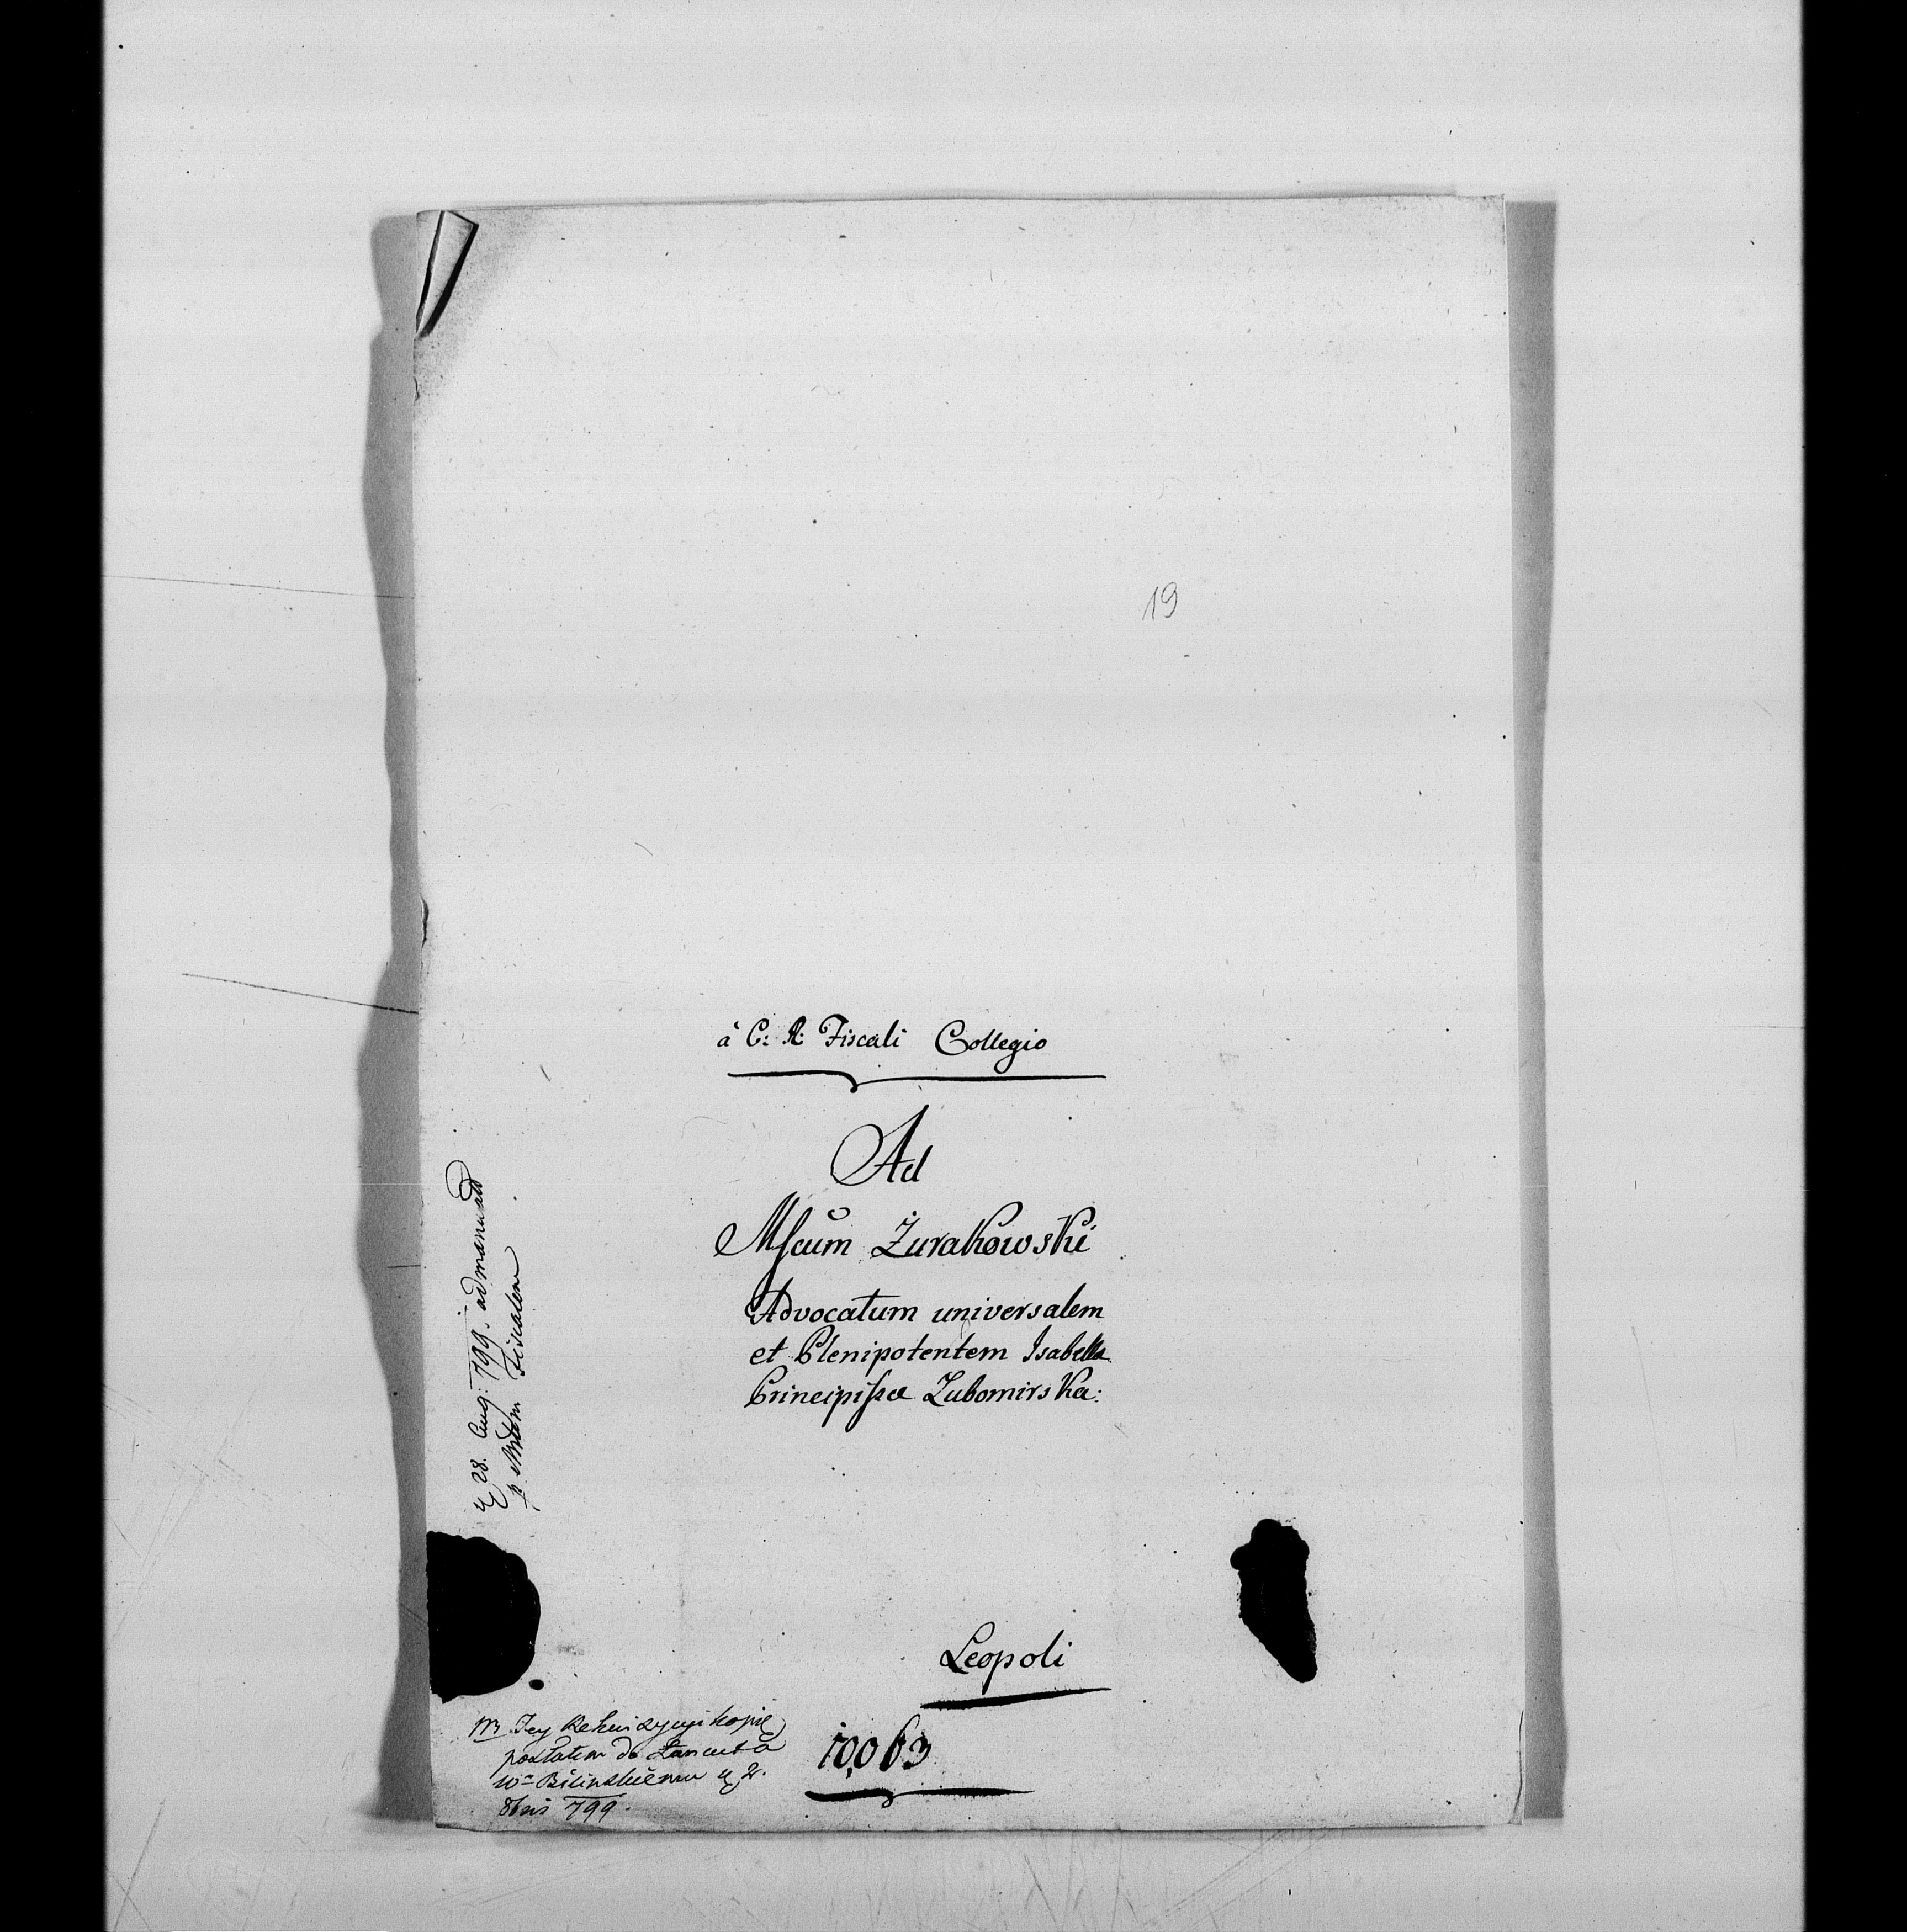 19
à C: R: Fiscali Collegio
Ad
Mfcum Żurakowski
Advocatum universalem
et Plenipotentem Isabella
Principissæ Lubomirska:
Leopoli
10,063
28. Aug: 799. ad manu
Fiscalem
NB Tey kopię
posłałem do Łancuta
W Bilinskiemu 2.
8bris 799.